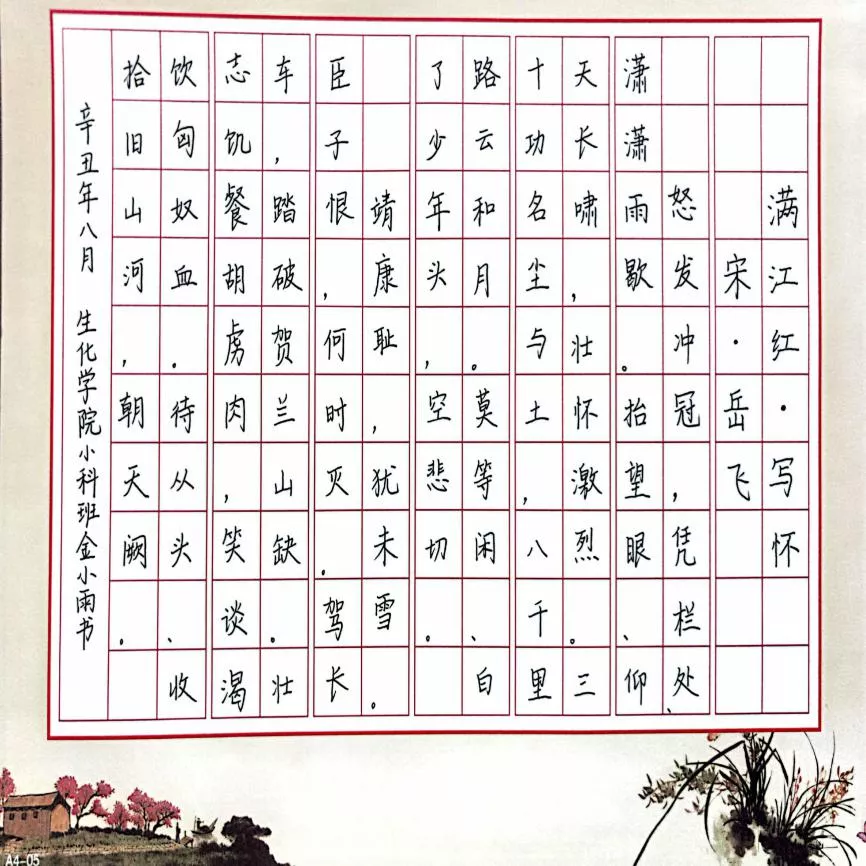 满江红·写怀
宋·岳飞
怒发冲冠，凭栏处、
潇潇雨歇。抬望眼、仰
天长啸，壮怀激烈。三
十功名尘与土，八千里
路云和月。莫等闲、白
了少年头，空悲切。
靖康耻，犹未雪。
臣子恨，何时灭。驾长
车，踏破贺兰山缺。壮
志饥餐胡虏肉，笑谈渴
饮匈奴血。待从头、收
拾旧山河，朝天阙。
辛丑年八月 生化学院小科班金小雨书
A4-05